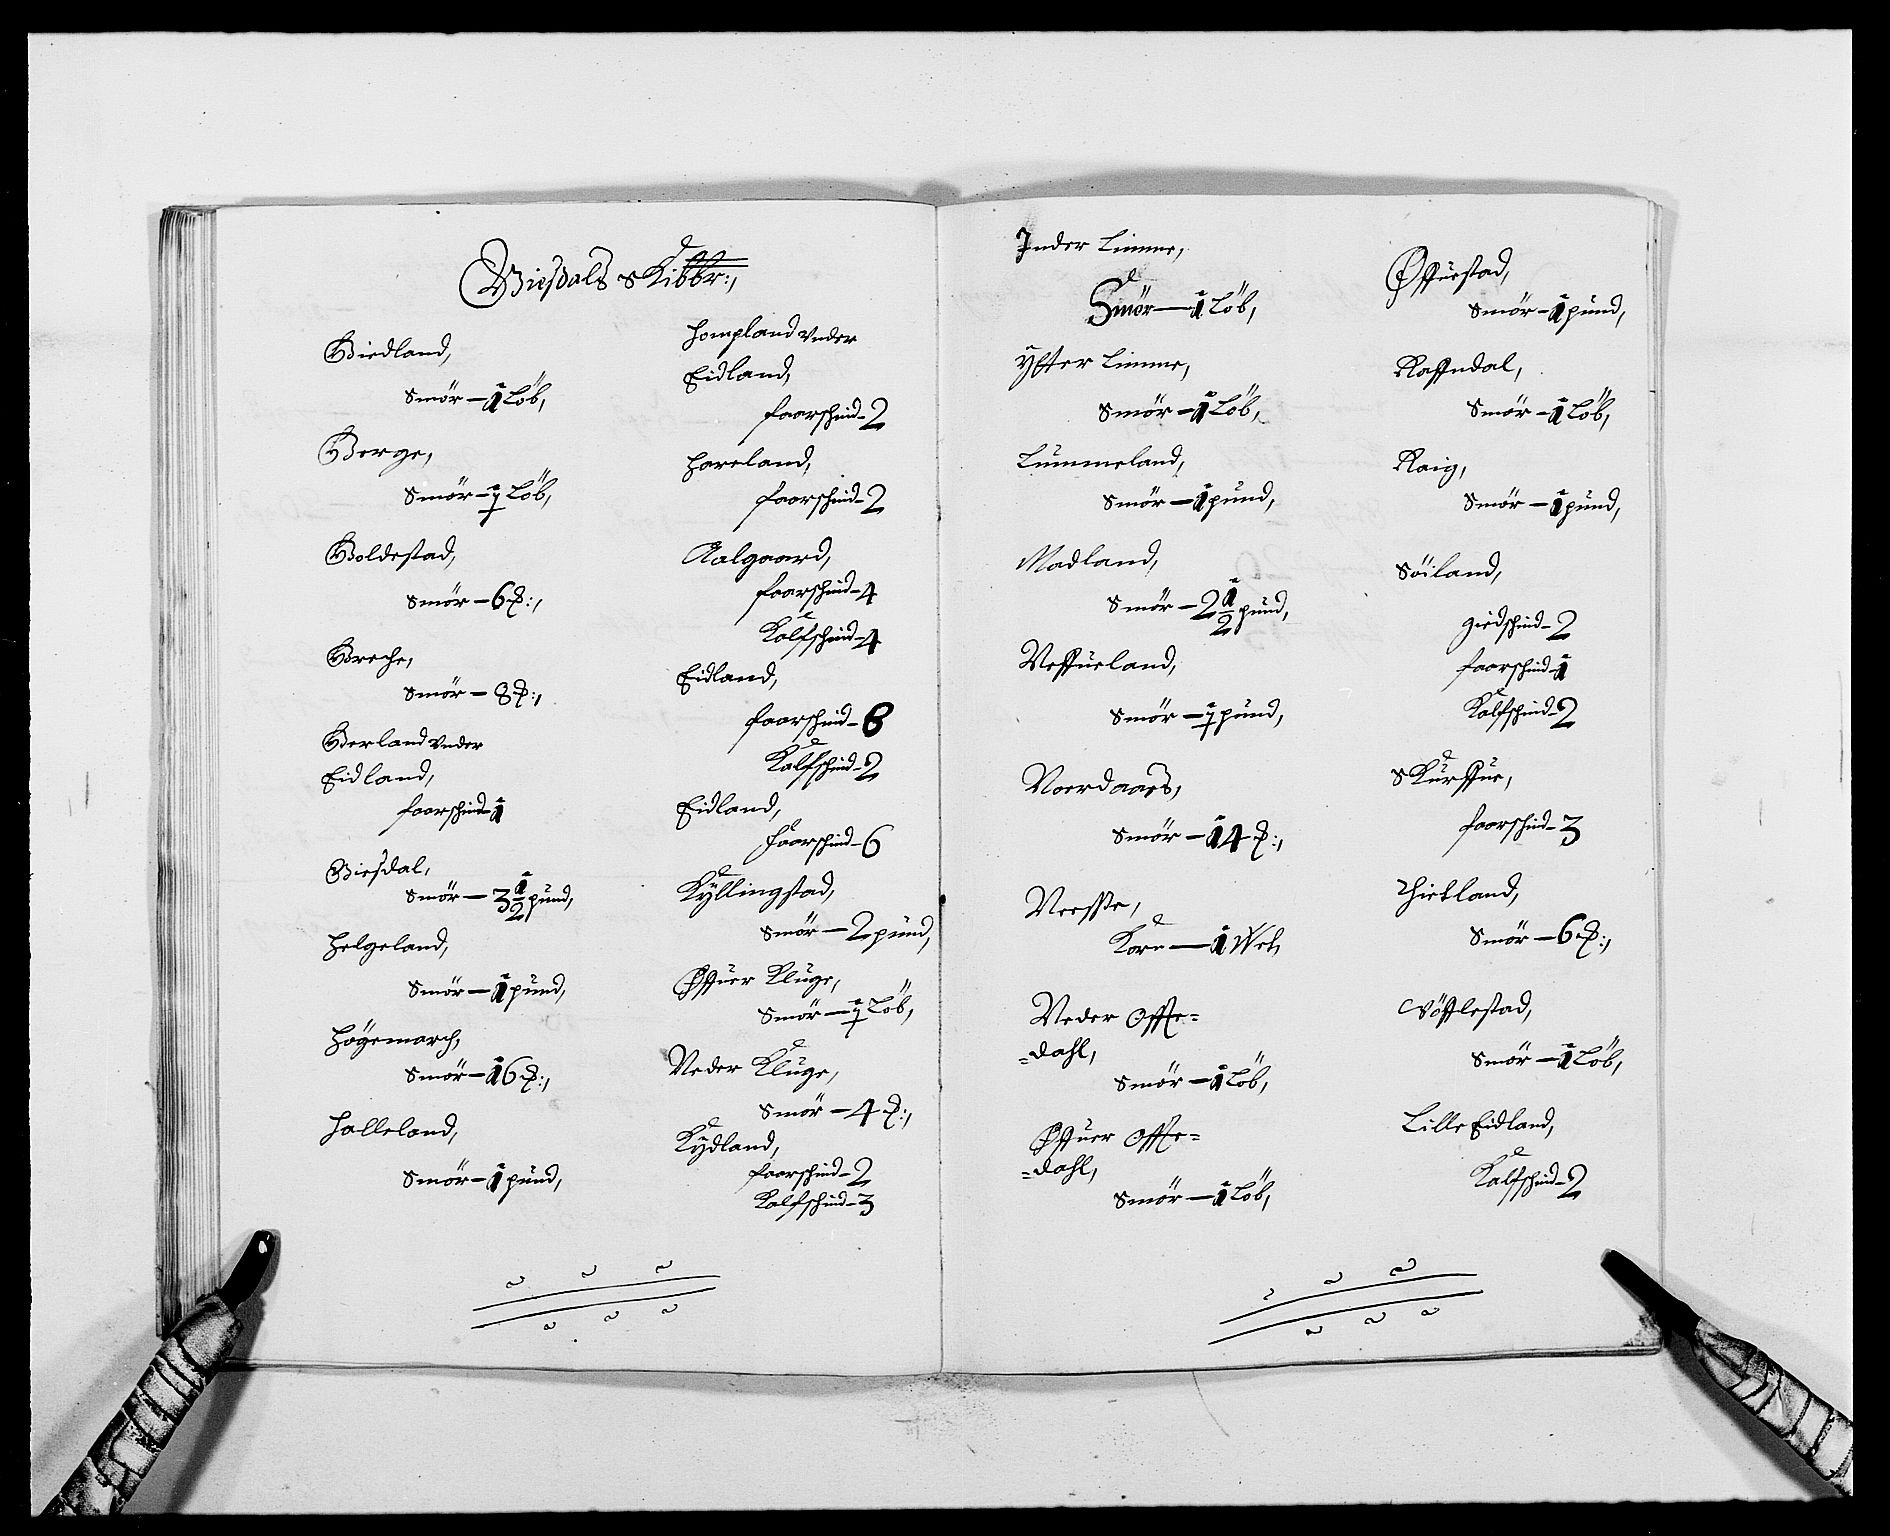 Giesdals Skibbr:,
Giedland,
Smör – 1 Löb,
Berge,
Smör – ½ Löb,
Boldestad,
Smör – 6 ℔:,
Breche,
Smör – 8 ℔:,
Berland Under
Eidland,
faarschind – 1
Giesdal,
Smör – 3 1/2 pund,
Helgeland,
Smör – 1 pund,
Högemarch,
Smör – 16 ℔:,
Halleland,
Smör – 1 pund,
Hompland Under
Eidland,
faarschind – 2
Hareland,
faarschind – 2
Aalgaard,
faarschind – 4
Kalfschind – 4
Eidland,
faarschind – 8
Kalfschind – 2
Eidland,
faarschind – 6
Kÿllingstad,
Smör – 2 pund,
Øffuer Kluge,
Smör – ½ Löb,
Neder Kluge,
Smör – 4 ℔:,
Kÿdland,
faarschind – 2
Kalfschind – 3
Inder Limme,
Smör – 1 Löb,
Ÿtter Limme,
Smör – 1 Löb,
Lummeland,
Smör – 1 pund,
Madland,
Smör – 2 1/2 pund,
Neffueland,
Smör – ½ pund,
Noerdaas,
Smör – 14 ℔:,
Nesse,
Korn – 1 Wet,
Neder Offte=
=dahl,
Smör – 1 Löb,
Øffuer Offte=
=dahl,
Smör – 1 Löb,
Øffuestad,
Smör – 1 pund,
Raffndal,
Smör – 1 Löb,
Raig,
Smör – 1 pund,
Söiland,
giedschind – 2
faarschind – 1
Kalfschind – 2
Skurffue,
faarschind – 3
Thietland,
Smör – 6 ℔:,
Vöfflestad,
Smör – 1 Löb,
Lille Eidland,
Kalfschind – 2